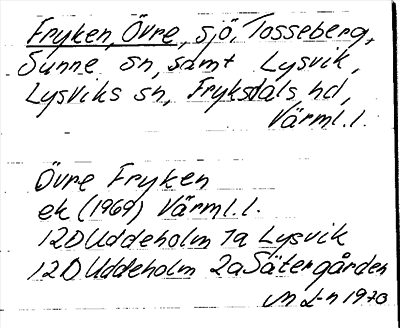 Fryken, Övre, sjö, Tosseberg,
Sunne sn, samt Lysvik,
Lysviks sn, Fryksdals hd,
Värml.l.
Övre Fryken
ek (1969) Värml.l.
12D Uddeholm 1a Lysvik
12D Uddeholm 2a Sätergården
1970